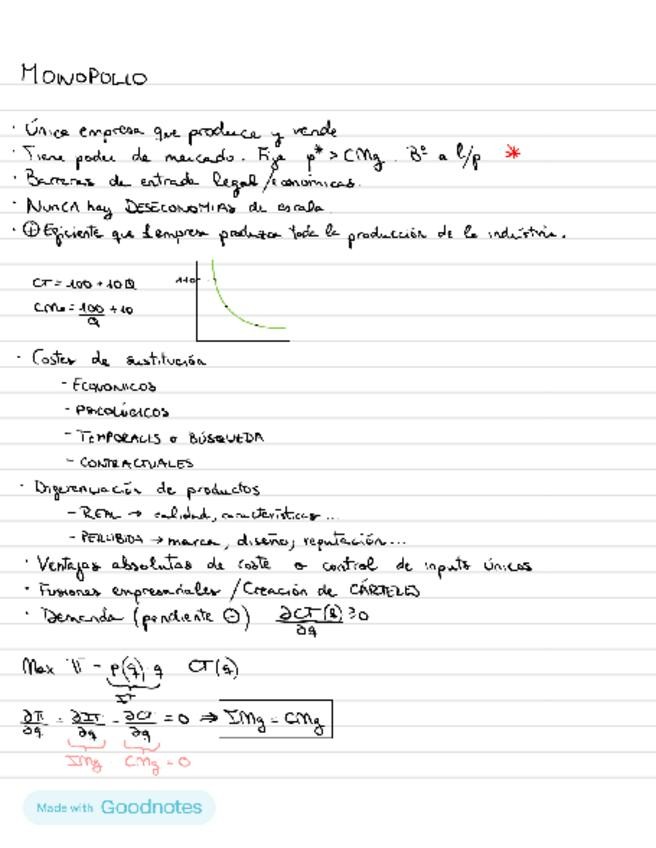 MONOPOLIO
· Única empresa que produce y vende
· Tiene poder de mercado. Fija p* > CMg. Bº a l/p *
· Barreras de entrada legal/económicas.
· NUNCA hay DESECONOMIAS de escala
· ⊕ Eficiente que 1 empresa produzca toda la producción de la industria.
CT = 100 + 10Q
110
CMe = 100/Q + 10
· Costes de sustitución
- ECONOMICOS
- PSICOLÓGICOS
- TEMPORALES o BÚSQUEDA
- CONTRACTUALES
· Diferenciación de productos
- REAL → calidad, características...
- PERCIBIDA → marca, diseño, reputación...
· Ventajas absolutas de coste o control de inputs únicos
· Fusiones empresariales / Creación de CÁRTELES
· Demanda (pendiente ⊖) ∂CT(q)/∂q ≥ 0
Max π = p(q)·q CT(q)
IT
∂π/∂q = ∂IT/∂q - ∂CT/∂q = 0 ⇒ IMg = CMg
IMg CMg = 0
Made with Goodnotes